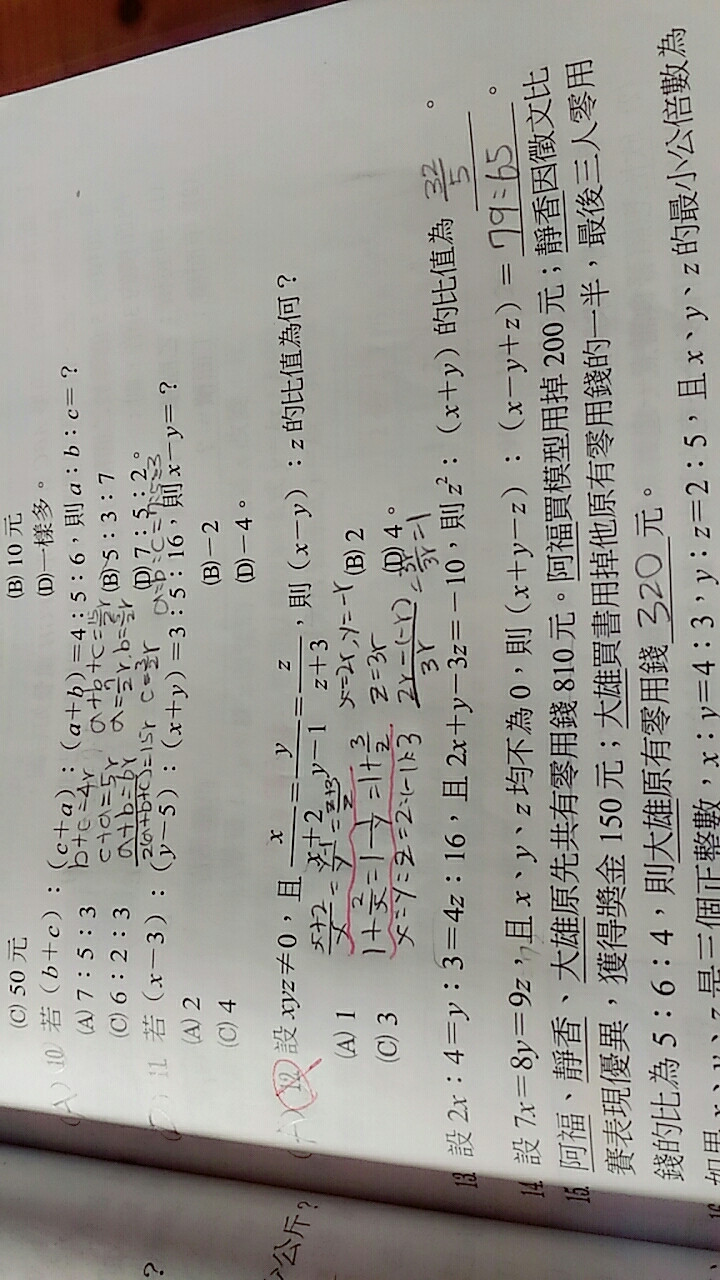 (C) 50元
(B) 10元
(D)一樣多。
(A) 10 若（b+c）:（c+a）:（a+b）=4:5:6，則a:b:c=？
b+c=4r
(A) 7:5:3
(B) 5:3:7
c+a=5r
a+b=6r
(C) 6:2:3
(D) 7:5:2。
2(a+b+c)=15r
(D) 11 若（x-3）:（y-5）:（x+y）=3:5:16，則x-y=？
(A) 2
(B) -2
(C) 4
(D) -4。
(A) 12 設xyz≠0，且 x/(x+2) = y/(y-1) = z/(z+3)，則（x-y）:z的比值為何？
(A) 1
(B) 2
x=2r, y=-r
z=3r
(C) 3
(D) 4。
x:y:z=2:(-1):3
13. 設2x:4=y:3=4z:16，且2x+y-3z=-10，則z²:（x+y）的比值為 32/5 。
14. 設7x=8y=9z，且x、y、z均不為0，則（x+y-z）:（x-y+z）= 79:65 。
15. 阿福、靜香、大雄原先共有零用錢810元。阿福買模型用掉200元；靜香因徵文比
賽表現優異，獲得獎金150元；大雄買書用掉他原有零用錢的一半，最後三人零用
錢的比為5:6:4，則大雄原有零用錢 320 元。
16. 如果x、y、z是三個正整數，x:y=4:3，y:z=2:5，且x、y、z的最小公倍數為
公斤？
？